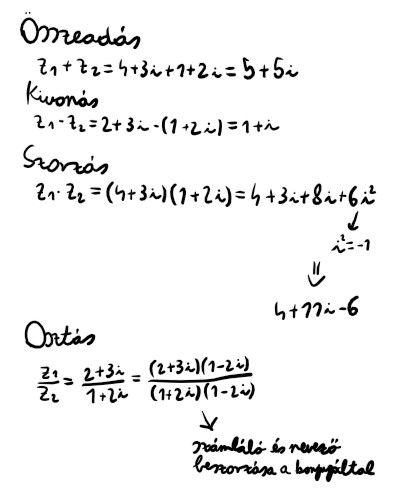 Összeadás
z₁ + z₂ = 4+3i+1+2i = 5+5i
Kivonás
z₁ - z₂ = 2+3i-(1+2i) = 1+i
Szorzás
z₁ · z₂ = (4+3i)(1+2i) = 4+3i+8i+6i²
i²=-1
⇓
4+11i-6
Osztás
z₁/z₂ = (2+3i)/(1+2i) = (2+3i)(1-2i)/(1+2i)(1-2i)
számláló és nevező
beszorzása a konjugálttal